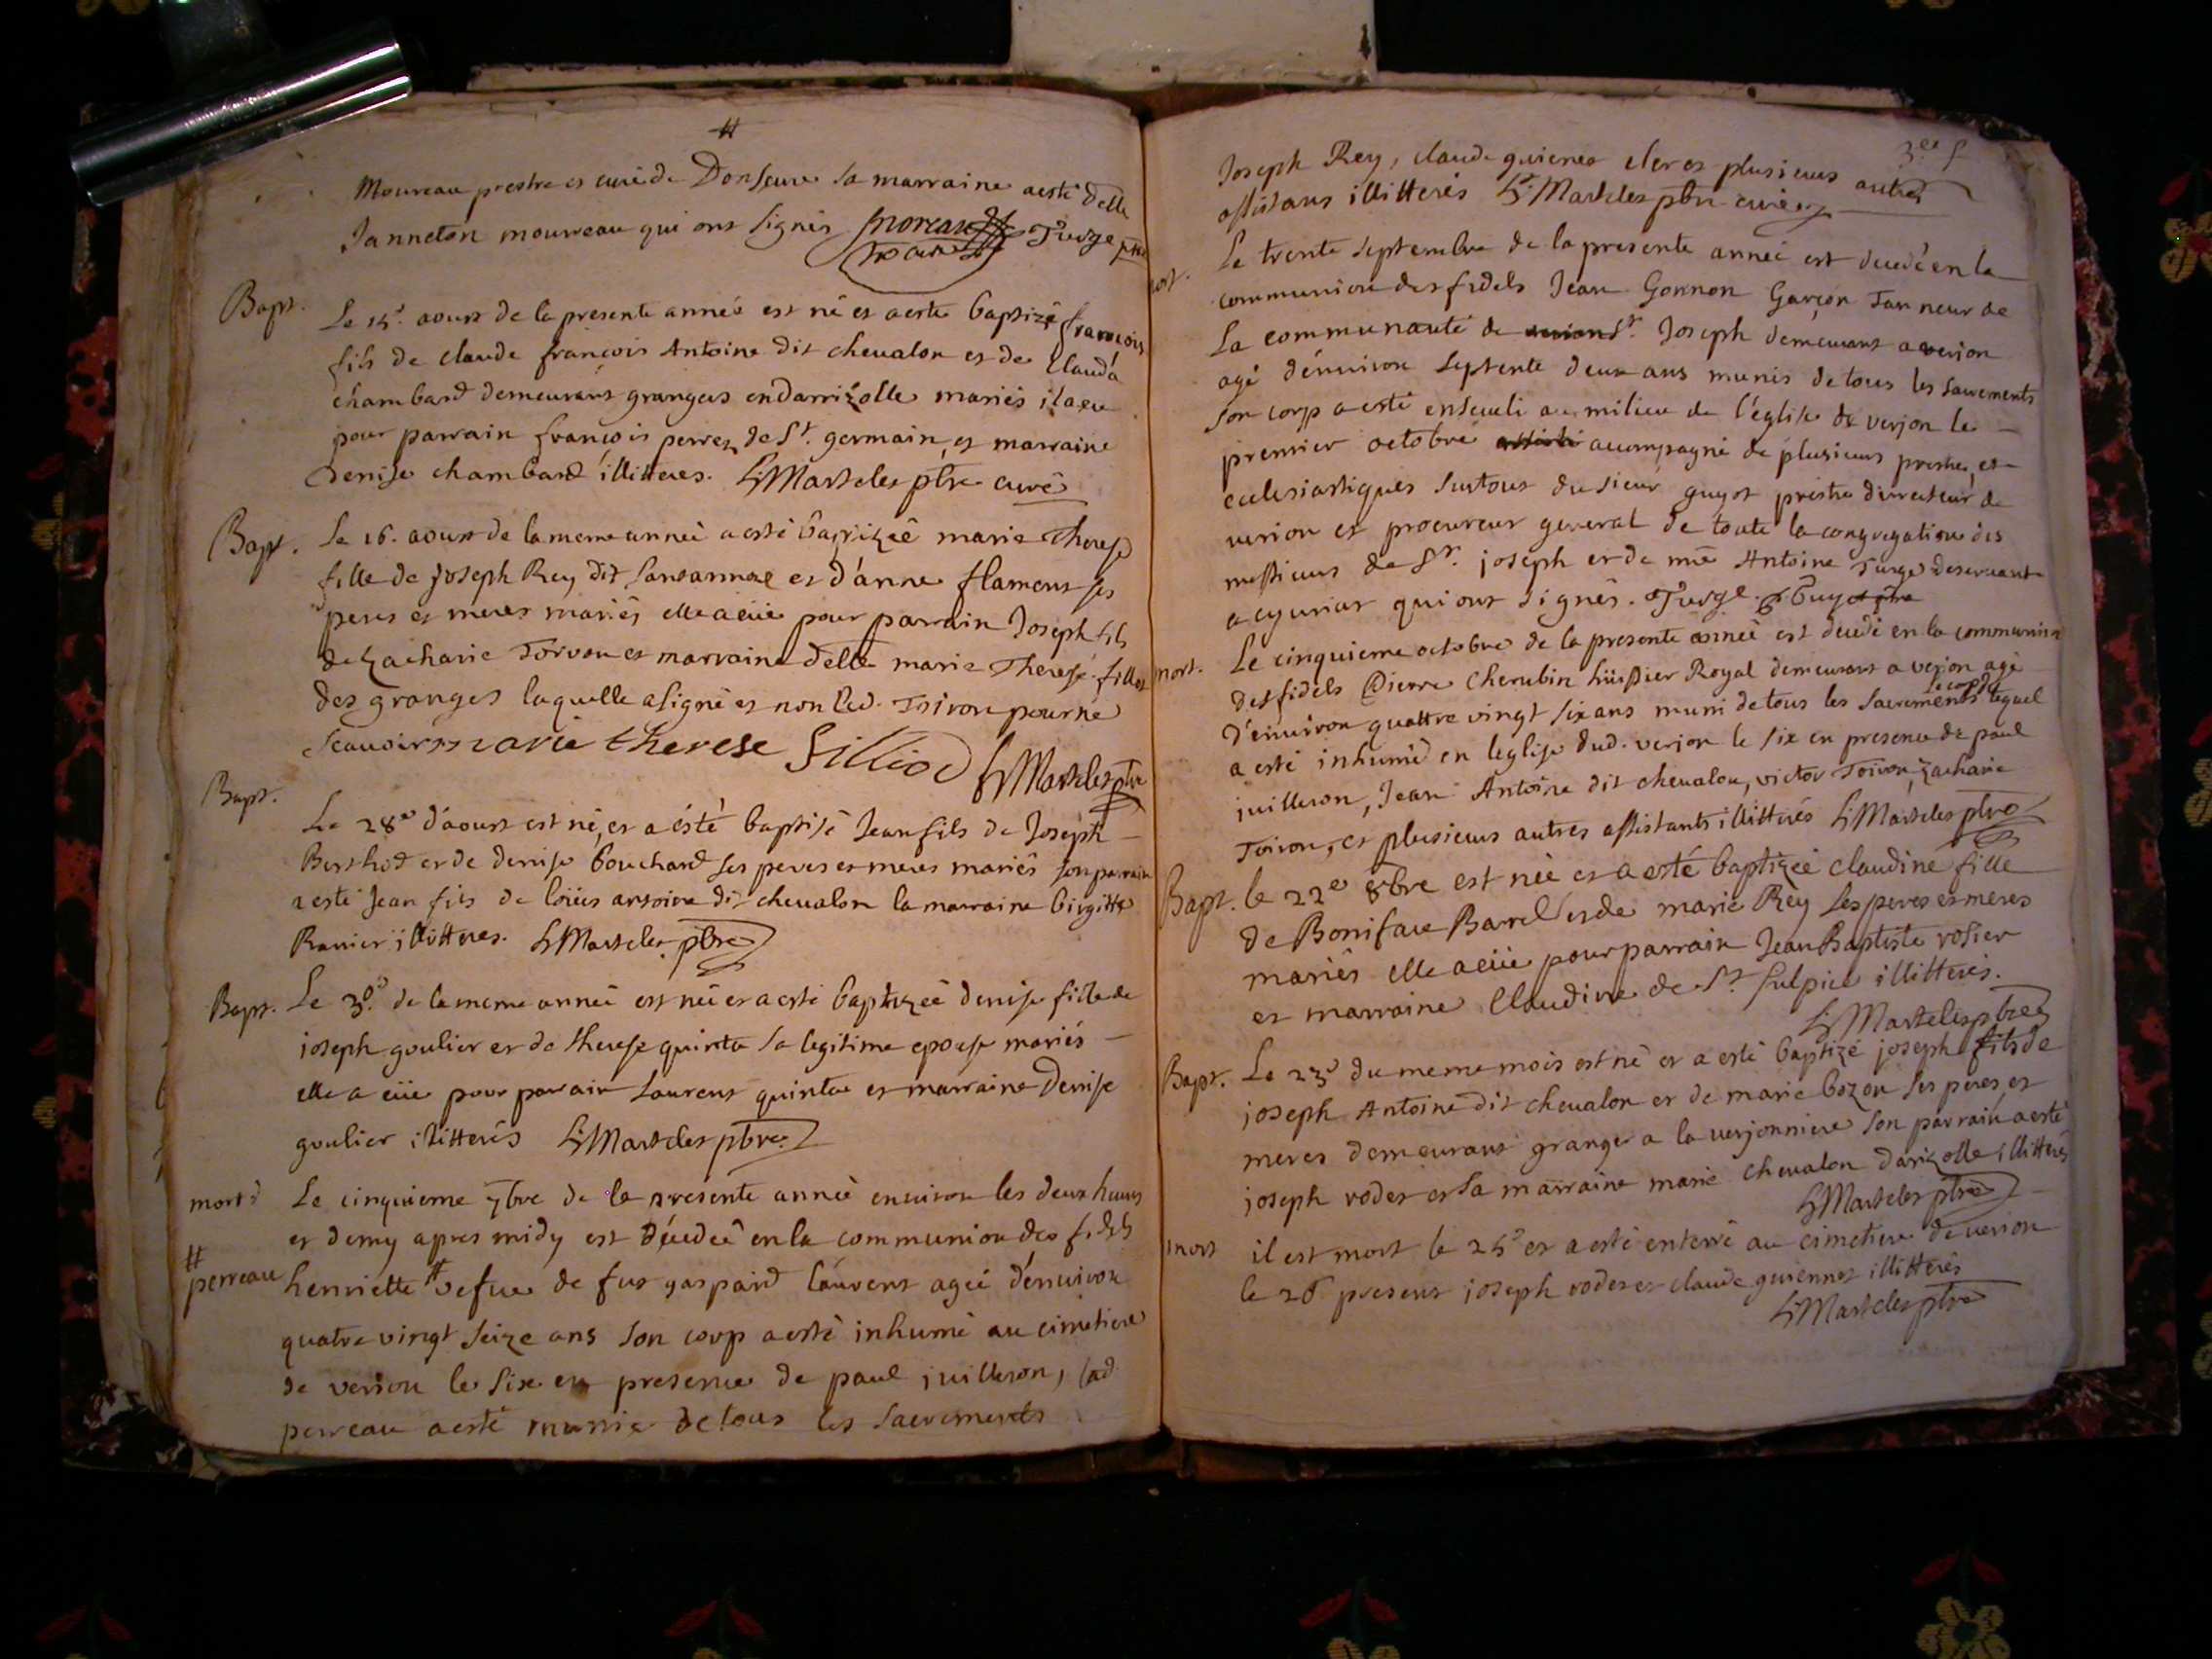 #
Moureau prestre et curé de Donseure sa marraine a esté delle
Janneton moureau qui ont signés moreau Turge ptre
Bapt. Le 15e. aoust de la presente année est né et a esté baptizé francois
fils de claude françois Antoine dit cheualon et de Clauda
chambard demeurants grangers en darrizolle mariés il a eu
pour parrain françois perret de St. germain et marraine
Denise chambard illitteres. Martelet ptre curé
Bapt. Le 16. aoust de la meme année a esté baptizeé marie Therese
fille de joseph Rey dit Sansannoz et d'anne flament ses
peres et meres mariés elle a eüe pour parrain Joseph fils
de Zacharie Toiron et marraine delle marie Therese fille
des granges laquelle a signé et non led. Toiron pour ne
scauoir marie therese Silliod Martelet ptre
Bapt. Le 28e d'aoust est né, et a ésté baptisé Jean fils de Joseph
Berthod et de denise bouchard ses peres et meres mariés son parrain
a esté Jean fils de loüis antoine dit cheualon la marraine birgitte
Ranier illitteres. Martelet ptre
Bapt. Le 30e de la meme année est neé et a esté baptizeé denise fille de
joseph goulier et de therese quinta sa legitime epouse mariés
elle a eüe pour parain Laurent quinta et marraine Denise
goulier ilitterés Martelet ptre
mort Le cinquieme 7bre de la presente année enuiron les deux heures
et demy apres midy est décedeé en la communion des fidels
# perreau henriette # vefue de fut gaspard laurent ageé d'enuiron
quatre vingt seize ans son corp a esté inhumé au cimetiere
de verion le six en presence de paul juilleron, lad
perreau a esté munie de tous les sacrements
Joseph Rey, claude guienet clerc et plusieurs autres
assistans illitterés Martelet ptre curé
mort. Le trente septembre de la presente année est decedé en la
communion des fidels Jean Gonnon Garçon Tanneur de
La communauté de St. Joseph demeurant a verjon
agé d'enuiron septente deux ans munis de tous les sacrements
son corp a esté enseueli au milieu de l'église de verjon le
premier octobre accompagné de plusieurs prestres et
eclesiastiques surtout du sieur guyot prestre directeur de
verion et procureur general de toute la congregation des
messieurs de St. joseph et de me Antoine Turge deseruant
a cyuriat qui ont signés. Turge. Guyot ptre
mort. Le cinquieme octobre de la presente année est decedé en la communion
des fidels Pierre Cherubin hüissier Royal demeurant a verjon agé
d'enuiron quattre vingt six ans muni de tous les sacrements lequel
a esté inhumé en leglise dud. verjon le six en presence de paul
juilleron, Jean Antoine dit cheualon, victor Toiron, Zacharie
Toiron, et plusieurs autres assistants illitterés Martelet ptre
Bapt. le 22e 8bre est neé et a esté baptizeé claudine fille
de Boniface Barrel et de marie Rey ses peres et meres
mariés elle a eüe pour parrain Jean Baptiste rosier
et marraine Claudine de St. sulpice illitterés.
Martelet ptre
Bapt. Le 23e du meme mois est né et a esté baptizé joseph fils de
joseph Antoine dit cheualon et de marie bozon ses peres et
meres demeurant granger a la verjonniere son parrain a esté
joseph rodet et la marraine marie cheualon d'arizolle illitterés
Martelet ptre
mort il est mort le 25e et a esté enterré au cimetiere de verion
le 26 present joseph rodet et claude guiennet illitterés
Martelet ptre